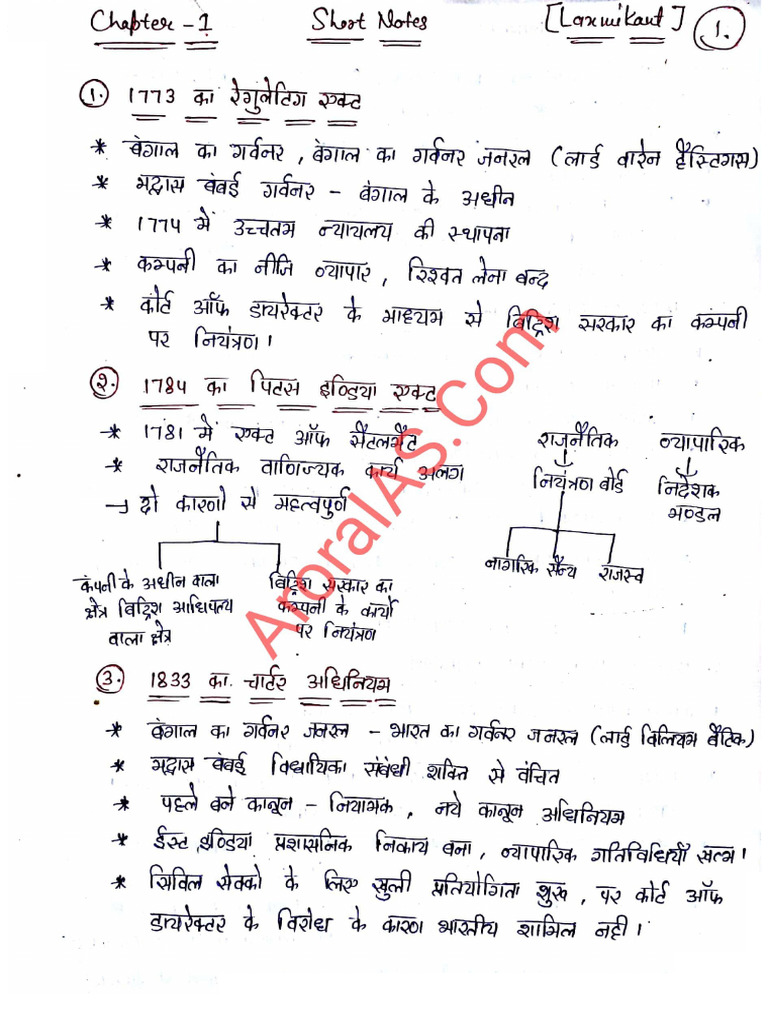 Chapter-1 Short Notes [Laxmikant] 1.
1. 1773 का रेगुलेटिंग एक्ट
* बंगाल का गर्वनर, बंगाल का गर्वनर जनरल (लार्ड वारेन हैस्टिंगस)
* मद्रास बंबई गर्वनर - बंगाल के अधीन
* 1774 में उच्चतम न्यायलय की स्थापना
* कम्पनी का नीजि व्यापार, रिश्वत लेना बन्द
* कोर्ट ऑफ डायरेक्टर के माध्यम से ब्रिट्रिश सरकार का कम्पनी
पर नियंत्रण।
२. 1784 का पिटस इण्डिया एक्ट
* 1781 में एक्ट ऑफ सैटलमेंट
* राजनैतिक वाणिज्यक कार्य अलग
→ दो कारणो से महत्वपूर्ण
कंपनी के अधीन वाला
क्षेत्र ब्रिट्रिश आधिपत्य
वाला क्षेत्र
ब्रिट्रिश सरकार का
कम्पनी के कार्यो
पर नियंत्रण
राजनैतिक व्यापारिक
नियंत्रण बोर्ड निदेशक
मण्डल
नागरिक सैन्य राजस्व
3. 1833 का चार्टर अधिनियम
* बंगाल का गर्वनर जनरल - भारत का गर्वनर जनरल (लार्ड विलियम बैंटिक)
* मद्रास बंबई विधायिका संबंधी शक्ति से वंचित
* पहले बने कानून - नियामक, नये कानून अधिनियम
* ईस्ट इण्डिया प्रशासनिक निकाय बना, व्यापारिक गतिविधियाँ खत्म।
* सिविल सेवको के लिए खुली प्रतियोगिता शुरू, पर कोर्ट ऑफ
डायरेक्टर के विरोध के कारण भारतीय शामिल नही।
AroraIAS.Com